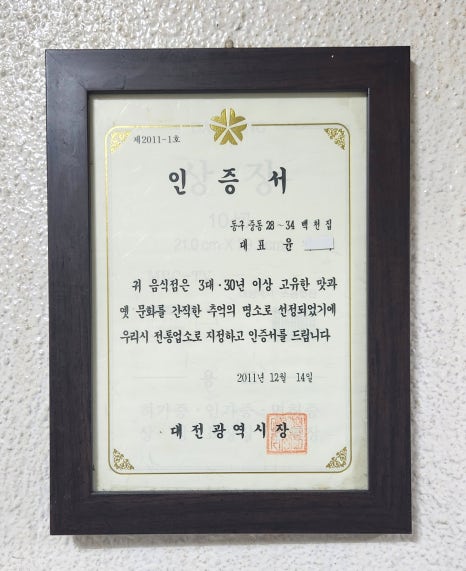 제2011-1호
인증서
동구 중동 28~34 백천집
대표 윤
귀 음식점은 3대·30년 이상 고유한 맛과
옛 문화를 간직한 추억의 명소로 선정되었기에
우리시 전통업소로 지정하고 인증서를 드립니다
2011년 12월 14일
대전광역시장